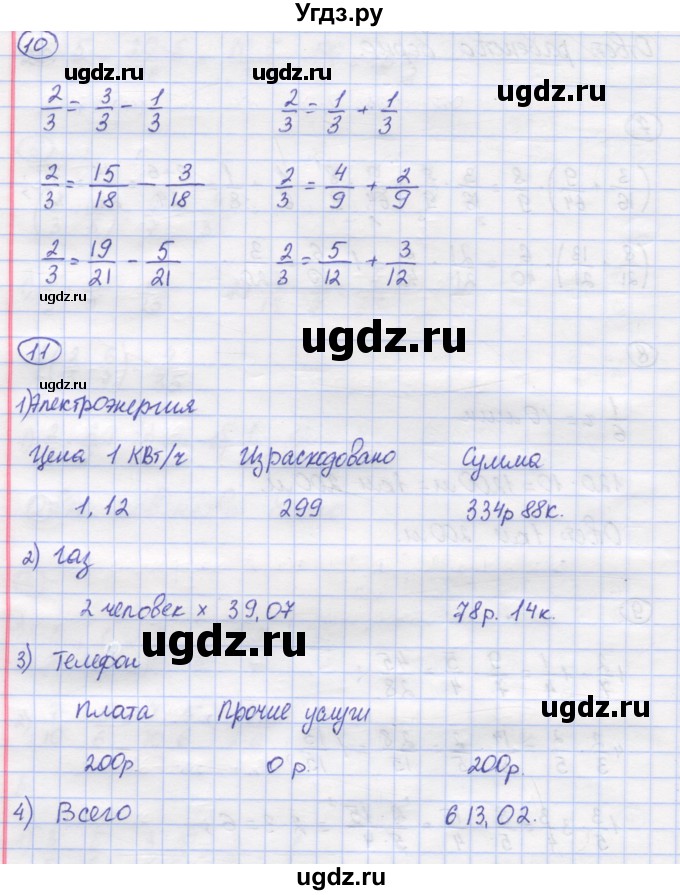 Угдз.ру
10
ugdz.ru
ugdz.ru
2/3 = 3/3 - 1/3
2/3 = 1/3 + 1/3
ugdz.ru
2/3 = 15/18 - 3/18
2/3 = 4/9 + 2/9
ugdz.ru
2/3 = 19/21 - 5/21
2/3 = 5/12 + 3/12
ugdz.ru
ugdz.ru
11
ugdz.ru
1) Электроэнергия
Цена 1 КВт/ч Израсходовано Сумма
1,12 299 334р 88к.
2) Газ
2 человек х 39,07 78р. 14к.
ugdz.ru
3) Телефон
Плата Прочие услуги
ugdz.ru
200р. 0 р. 200р.
4) Всего 613,02.
ugdz.ru
ugdz.ru